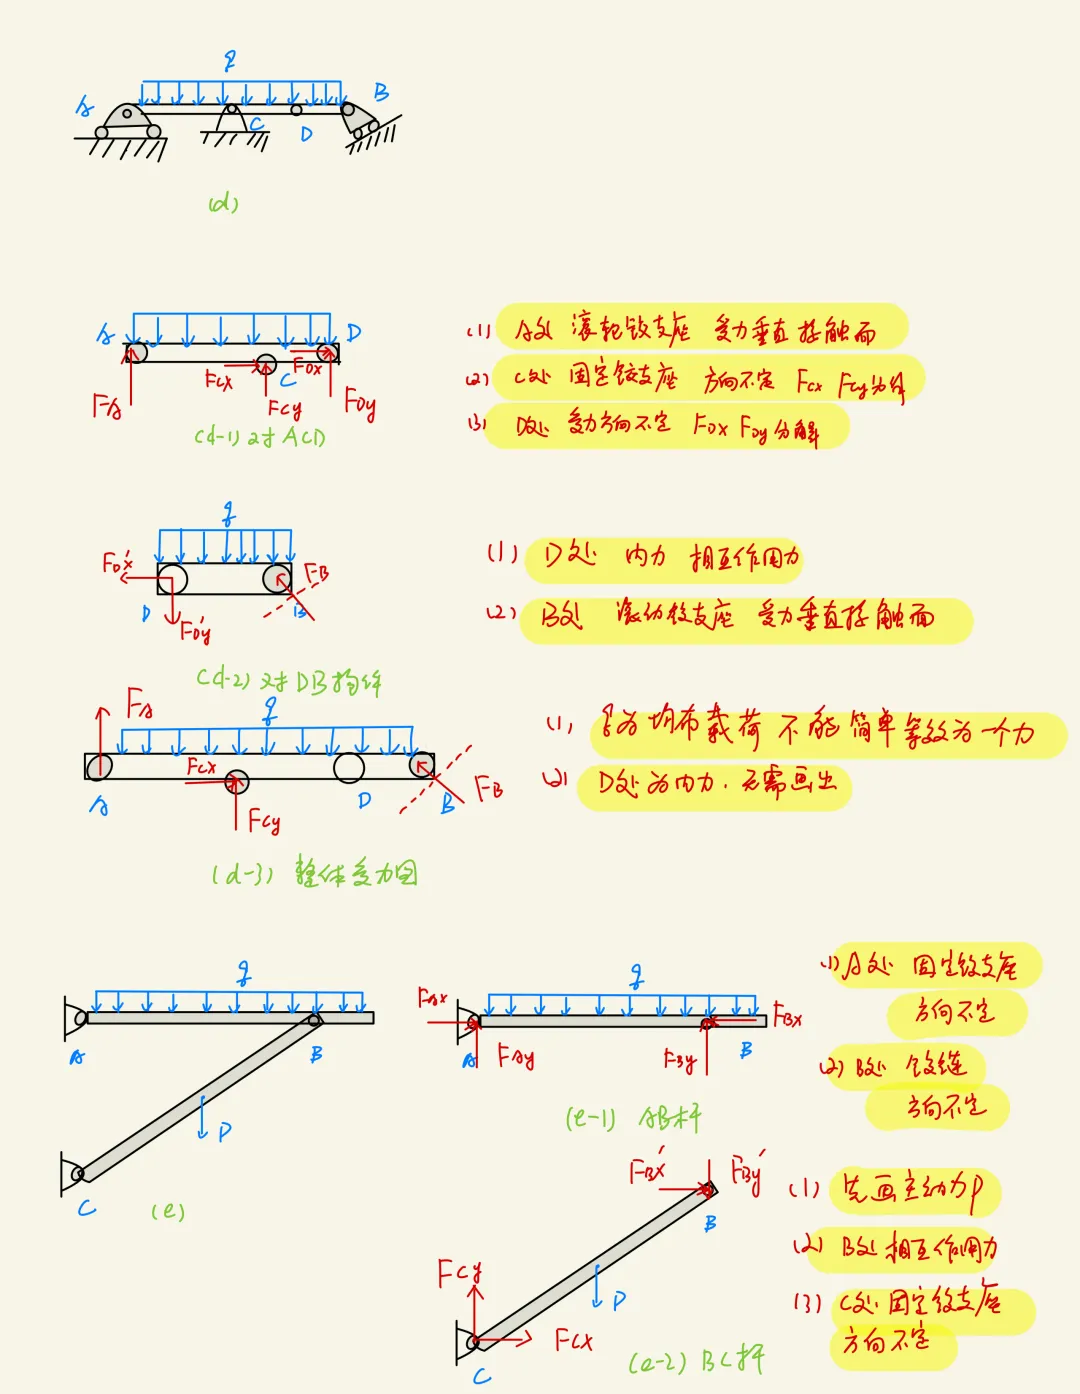 q
A
B
C
D
(d)
A
D
FCx
C
FDx
FA
FCy
FDy
(d-1) 对ACD
(1) A处 滚轮铰支座 受力垂直接触面
(2) C处 固定铰支座 方向不定 FCx FCy分解
(3) D处 受力方向不定 FDx FDy分解
q
FDx′
FB
D
B
FDy′
(d-2) 对DB构件
(1) D处 内力 相互作用力
(2) B处 滚动铰支座 受力垂直接触面
FA
q
FCx
A
D
B
FB
FCy
(d-3) 整体受力图
(1) q为均布载荷 不能简单等效为一个力
(2) D处为内力.无需画出
q
A
B
P
C
(e)
q
FAx
FBx
A
FAy
FBy
B
(e-1) AB杆
(1) A处 固定铰支座
方向不定
(2) B处 铰链
方向不定
FBx′
FBy′
B
FCy
P
FCx
C
(e-2) BC杆
(1) 先画主动力P
(2) B处相互作用力
(3) C处固定铰支座
方向不定